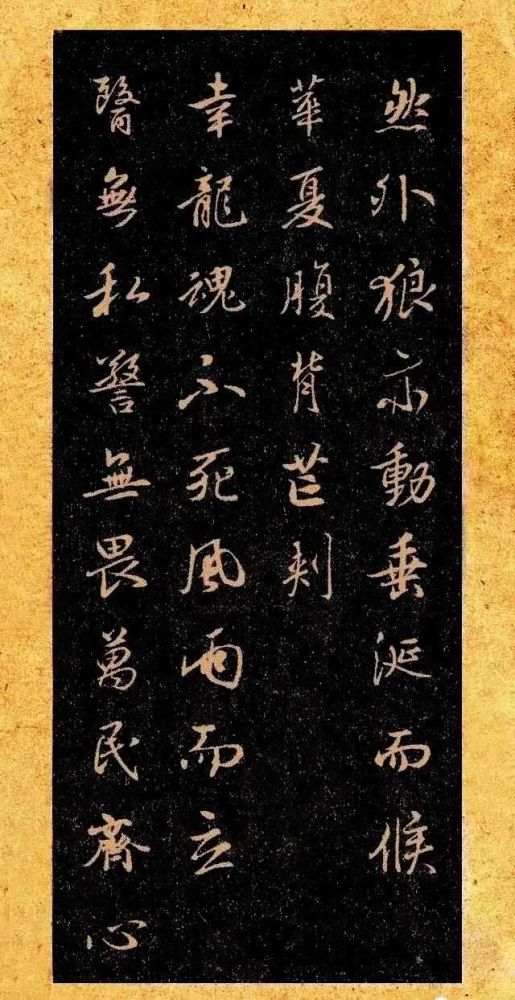 然外狼亦動垂涎而候
華夏腹背芒刺
幸龍魂不死風雨而立
醫無私警無畏萬民齊心